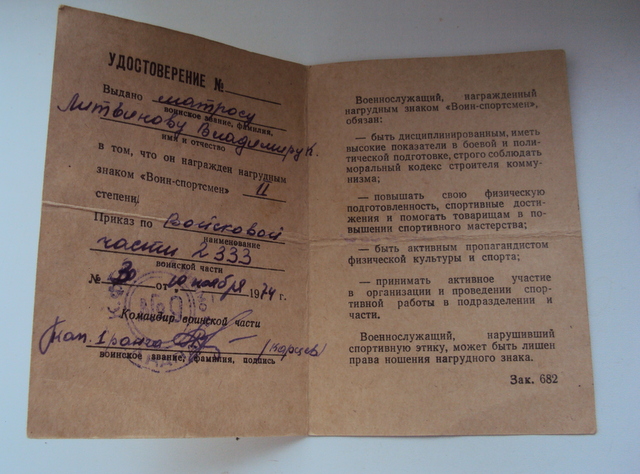 УДОСТОВЕРЕНИЕ №
Выдано матросу
воинское звание, фамилия,
Литвинову Владимиру К.
имя и отчество
в том, что он награжден нагрудным
знаком «Воин-спортсмен» II
степени.
Приказ по Войсковой
наименование
части 2333
воинской части
№ 30 от 10 ноября 1974 г.
Командир воинской части
Кап. 1 ранга /Карцев/
воинское звание, фамилия, подпись
Военнослужащий, награжденный
нагрудным знаком «Воин-спортсмен»,
обязан:
— быть дисциплинированным, иметь
высокие показатели в боевой и по-
литической подготовке, строго соблюдать
моральный кодекс строителя комму-
низма;
— повышать свою физическую
подготовленность, спортивные дости-
жения и помогать товарищам в по-
вышении спортивного мастерства;
— быть активным пропагандистом
физической культуры и спорта;
— принимать активное участие
в организации и проведении спор-
тивной работы в подразделении и
части.
Военнослужащий, нарушивший
спортивную этику, может быть лишен
права ношения нагрудного знака.
Зак. 682